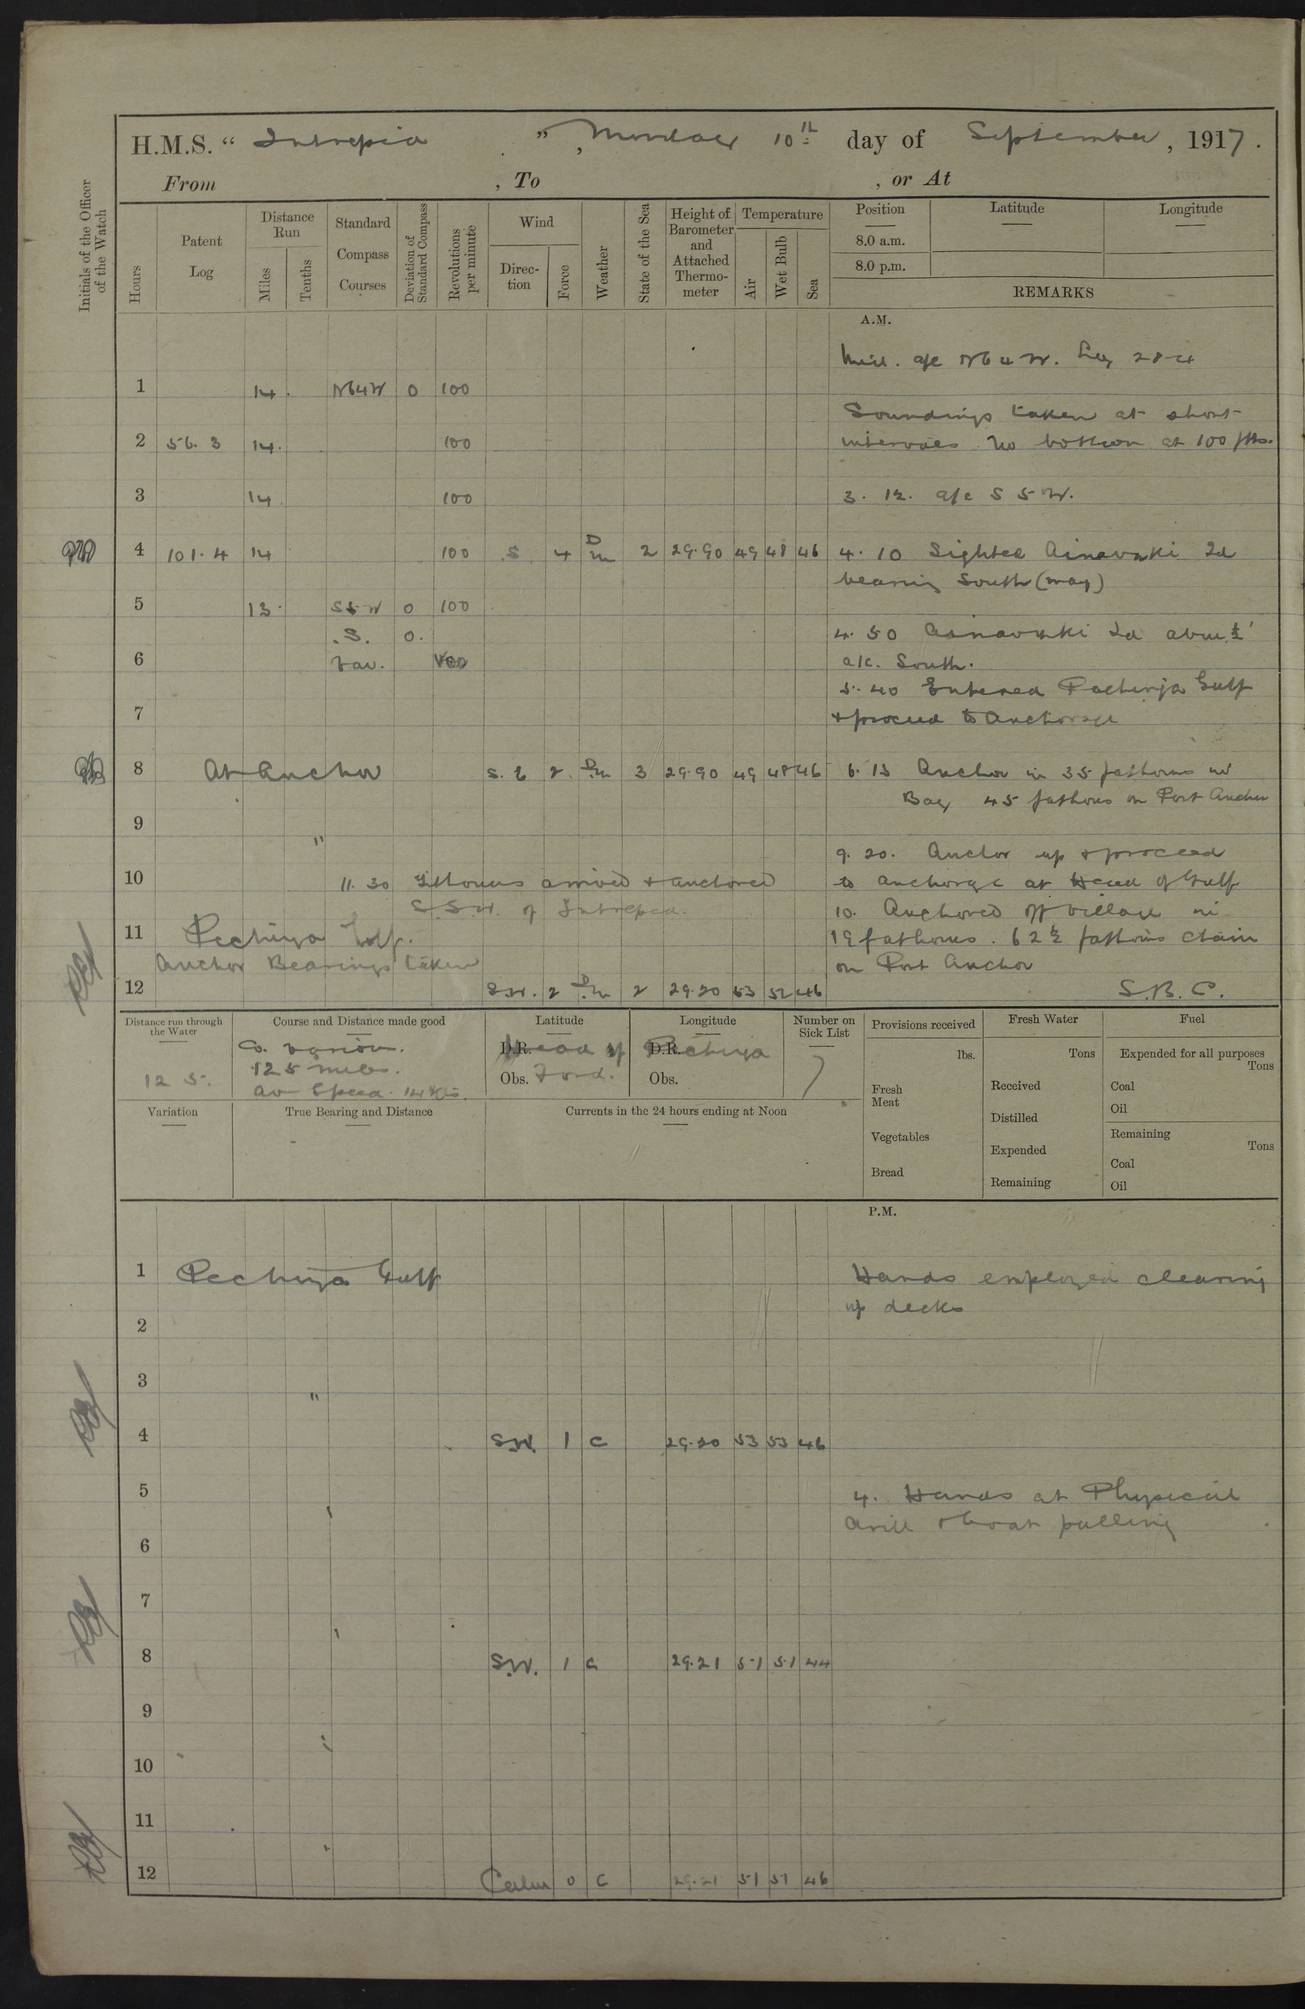 H.M.S. “ Intrepid ”, Monday 10th day of September, 1917.
From , To , or At
Initials of the Officer of the Watch
Hours
Patent Log
Distance Run
Miles
Tenths
Standard Compass Courses
Deviation of Standard Compass
Revolutions per minute
Wind
Direction
Force
Weather
State of the Sea
Height of Barometer and Attached Thermometer
Temperature
Air
Wet Bulb
Sea
Position
Latitude
Longitude
8.0 a.m.
8.0 p.m.
REMARKS
A.M.
a/c N64W. Log 28.4
1 14. N64W 0 100
Soundings taken at short
2 56.3 14. 100 intervals No bottom at 100 fths.
3 14 100 3.12. a/c S 5 W.
4 101.4 14 100 S 4 m 2 29.90 49 48 46 4.10 Sighted Ainavski Id
bearing South (mag)
5 13. S5W 0 100
S. 0. 4.50 Ainavski Id abm ½'
6 Var. Var a/c. South.
5.40 Entered Pechenja Gulf
7 + proceed to anchorage
8 At Anchor S.E 2. m 3 29.90 49 48 46 6.15 Anchor in 35 fathoms in
Bay 45 fathoms on Port Anchor
9
" 9.20. Anchor up + proceed
10 11.30 arrived + anchored to anchorage at Head of Gulf
S.S.W. of Intrepid. 10. Anchored off Village in
11 Pechinga Gulf. 19 fathoms. 62½ fathoms chain
Anchor Bearings taken on Port Anchor
12 S.W. 2 m 2 29.20 53 52 46 S.B.C.
Distance run through the Water
Course and Distance made good
Latitude
Longitude
Number on Sick List
Provisions received
Fresh Water
Fuel
125.
Co. various.
125 miles.
Av Speed. 14 Kts.
D.R. Head of
Obs. Fiord.
D.R. Pechinga
Obs.
7
lbs.
Fresh Meat
Vegetables
Bread
Tons
Received
Distilled
Expended
Remaining
Expended for all purposes
Tons
Coal
Oil
Remaining
Tons
Coal
Oil
Variation
True Bearing and Distance
Currents in the 24 hours ending at Noon
P.M.
1 Pechinga Gulf Hands employed cleaning
2 up decks
3
"
4 S.W. 1 c 29.20 53 53 46
5 4. Hands at Physical
drill + boat pulling
6
7
8 S.W. 1 c 29.21 51 51 44
9
10
11
12 Calm 0 c 29.21 51 51 46